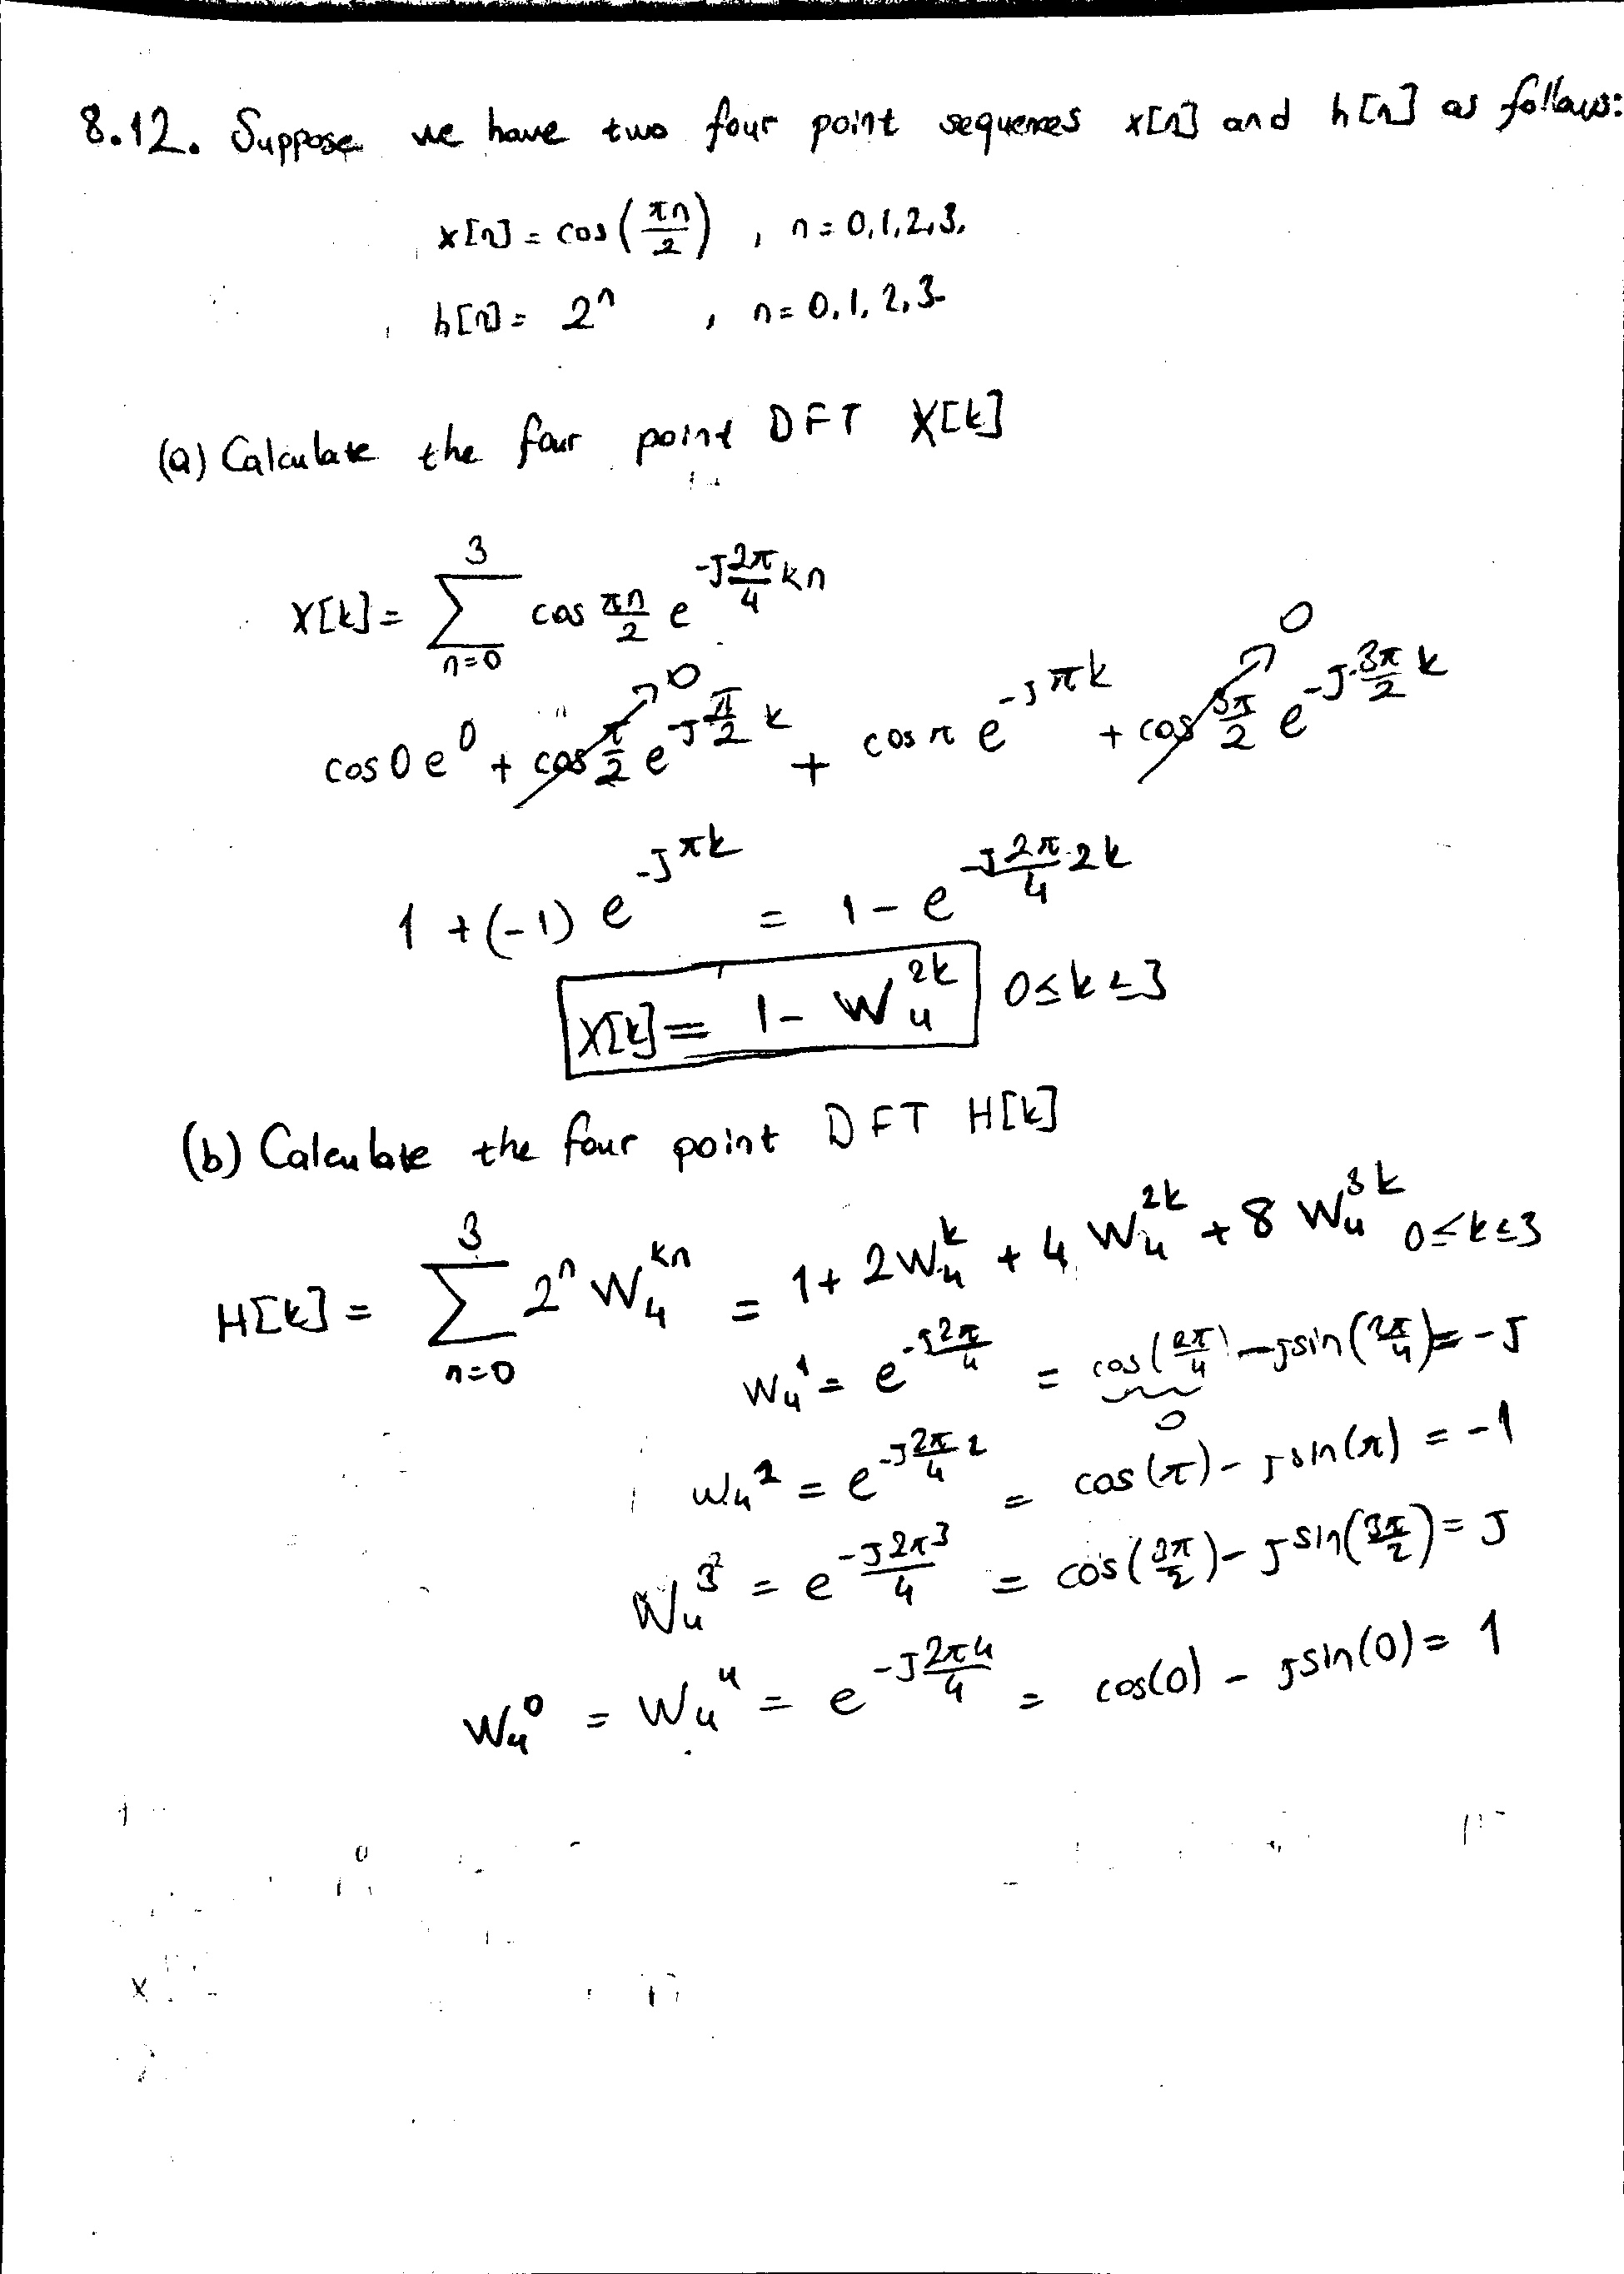 8.12. Suppose we have two four point sequences x[n] and h[n] as follows:
x[n] = cos(πn/2) , n = 0,1,2,3.
h[n] = 2^n , n = 0, 1, 2, 3
(a) Calculate the four point DFT X[k]
X[k] = Σ_{n=0}^{3} cos πn/2 e^{-J 2π/4 kn}
cos 0 e^0 + cos π/2 e^{-J π/2 k} + cos π e^{-J πk} + cos 3π/2 e^{-J 3π/2 k}
0 0
1 + (-1) e^{-J πk} = 1 - e^{-J 2π/4 · 2k}
X[k] = 1 - W_4^{2k} 0 ≤ k ≤ 3
(b) Calculate the four point DFT H[k]
H[k] = Σ_{n=0}^{3} 2^n W_4^{kn} = 1 + 2W_4^k + 4 W_4^{2k} + 8 W_4^{3k} 0 ≤ k ≤ 3
W_4^1 = e^{-J 2π/4} = cos(2π/4) - J sin(2π/4) = -J
0
W_4^2 = e^{-J 2π/4 2} = cos(π) - J sin(π) = -1
W_4^3 = e^{-J 2π3/4} = cos(3π/2) - J sin(3π/2) = J
W_4^0 = W_4^4 = e^{-J 2π4/4} = cos(0) - J sin(0) = 1